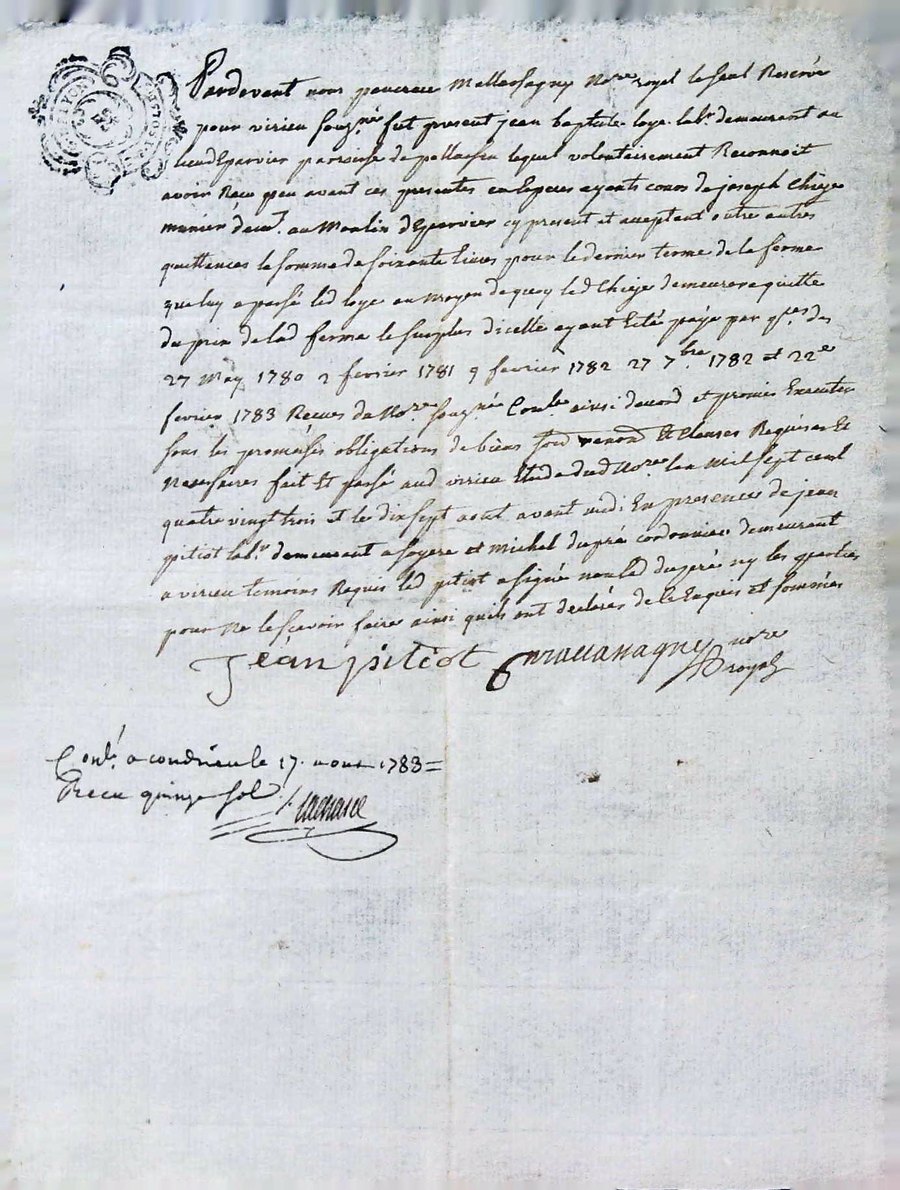 Pardevant nous pancrace Mallassagny No.re royal le seul Reservé
pour virieu souz.né fut present jean baptiste loye lab.r demeurant au
lieu d'Eparvier paroisse de pellussin lequel volontairement Reconnoit
avoir Recu peu avant ces presentes en especes ayants cours de joseph Chieze
munier dem.t au Moulin d'Eparvier cy present et acceptant outre autres
quittances la somme de soixante livres pour le dernier terme de la ferme
que luy a passé led loye au moyen de quoy led Chieze demeurera quitte
du prix de lad ferme le surplus dicelle ayant été payé par q.ces des
27 May 1780 2 fevrier 1781 9 fevrier 1782 27 7.bre 1782 et 22.e
fevrier 1783 Recues du No.re souz.né Cont.le ainsi dacord et promis Executer
sous les promesses obligations de biens et Clauses Requises Et
Necessaires fait Et passé aud virieu Etude dud No.re lan Mil sept cent
quatre vingt trois et le dix sept aout avant midi En presence de jean
pitiot lab.r demeurant a soyere et Michel dupré cordonnier demeurant
a virieu temoins Requis led pitiot a signé non led dupré ny les parties
pour Ne le scavoir faire ainsi quils ont declarés de ce Enquis et sommés
Jean pitiot Mallassagny nore
royal
Conl.é a condrieu le 17 aout 1783 =
Recu quinze sols